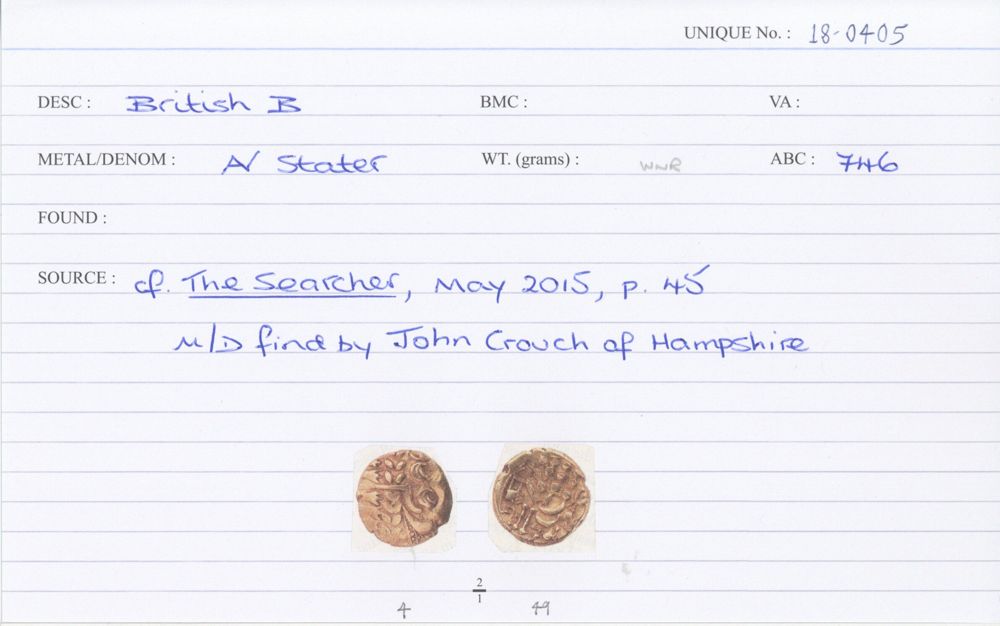 UNIQUE No. : 18-0405
DESC : British B BMC : VA :
METAL/DENOM : AV Stater WT. (grams) : WNR ABC : 746
FOUND :
SOURCE : cf. The Searcher, May 2015, p. 45
M/D find by John Crouch of Hampshire
2
1
4 49